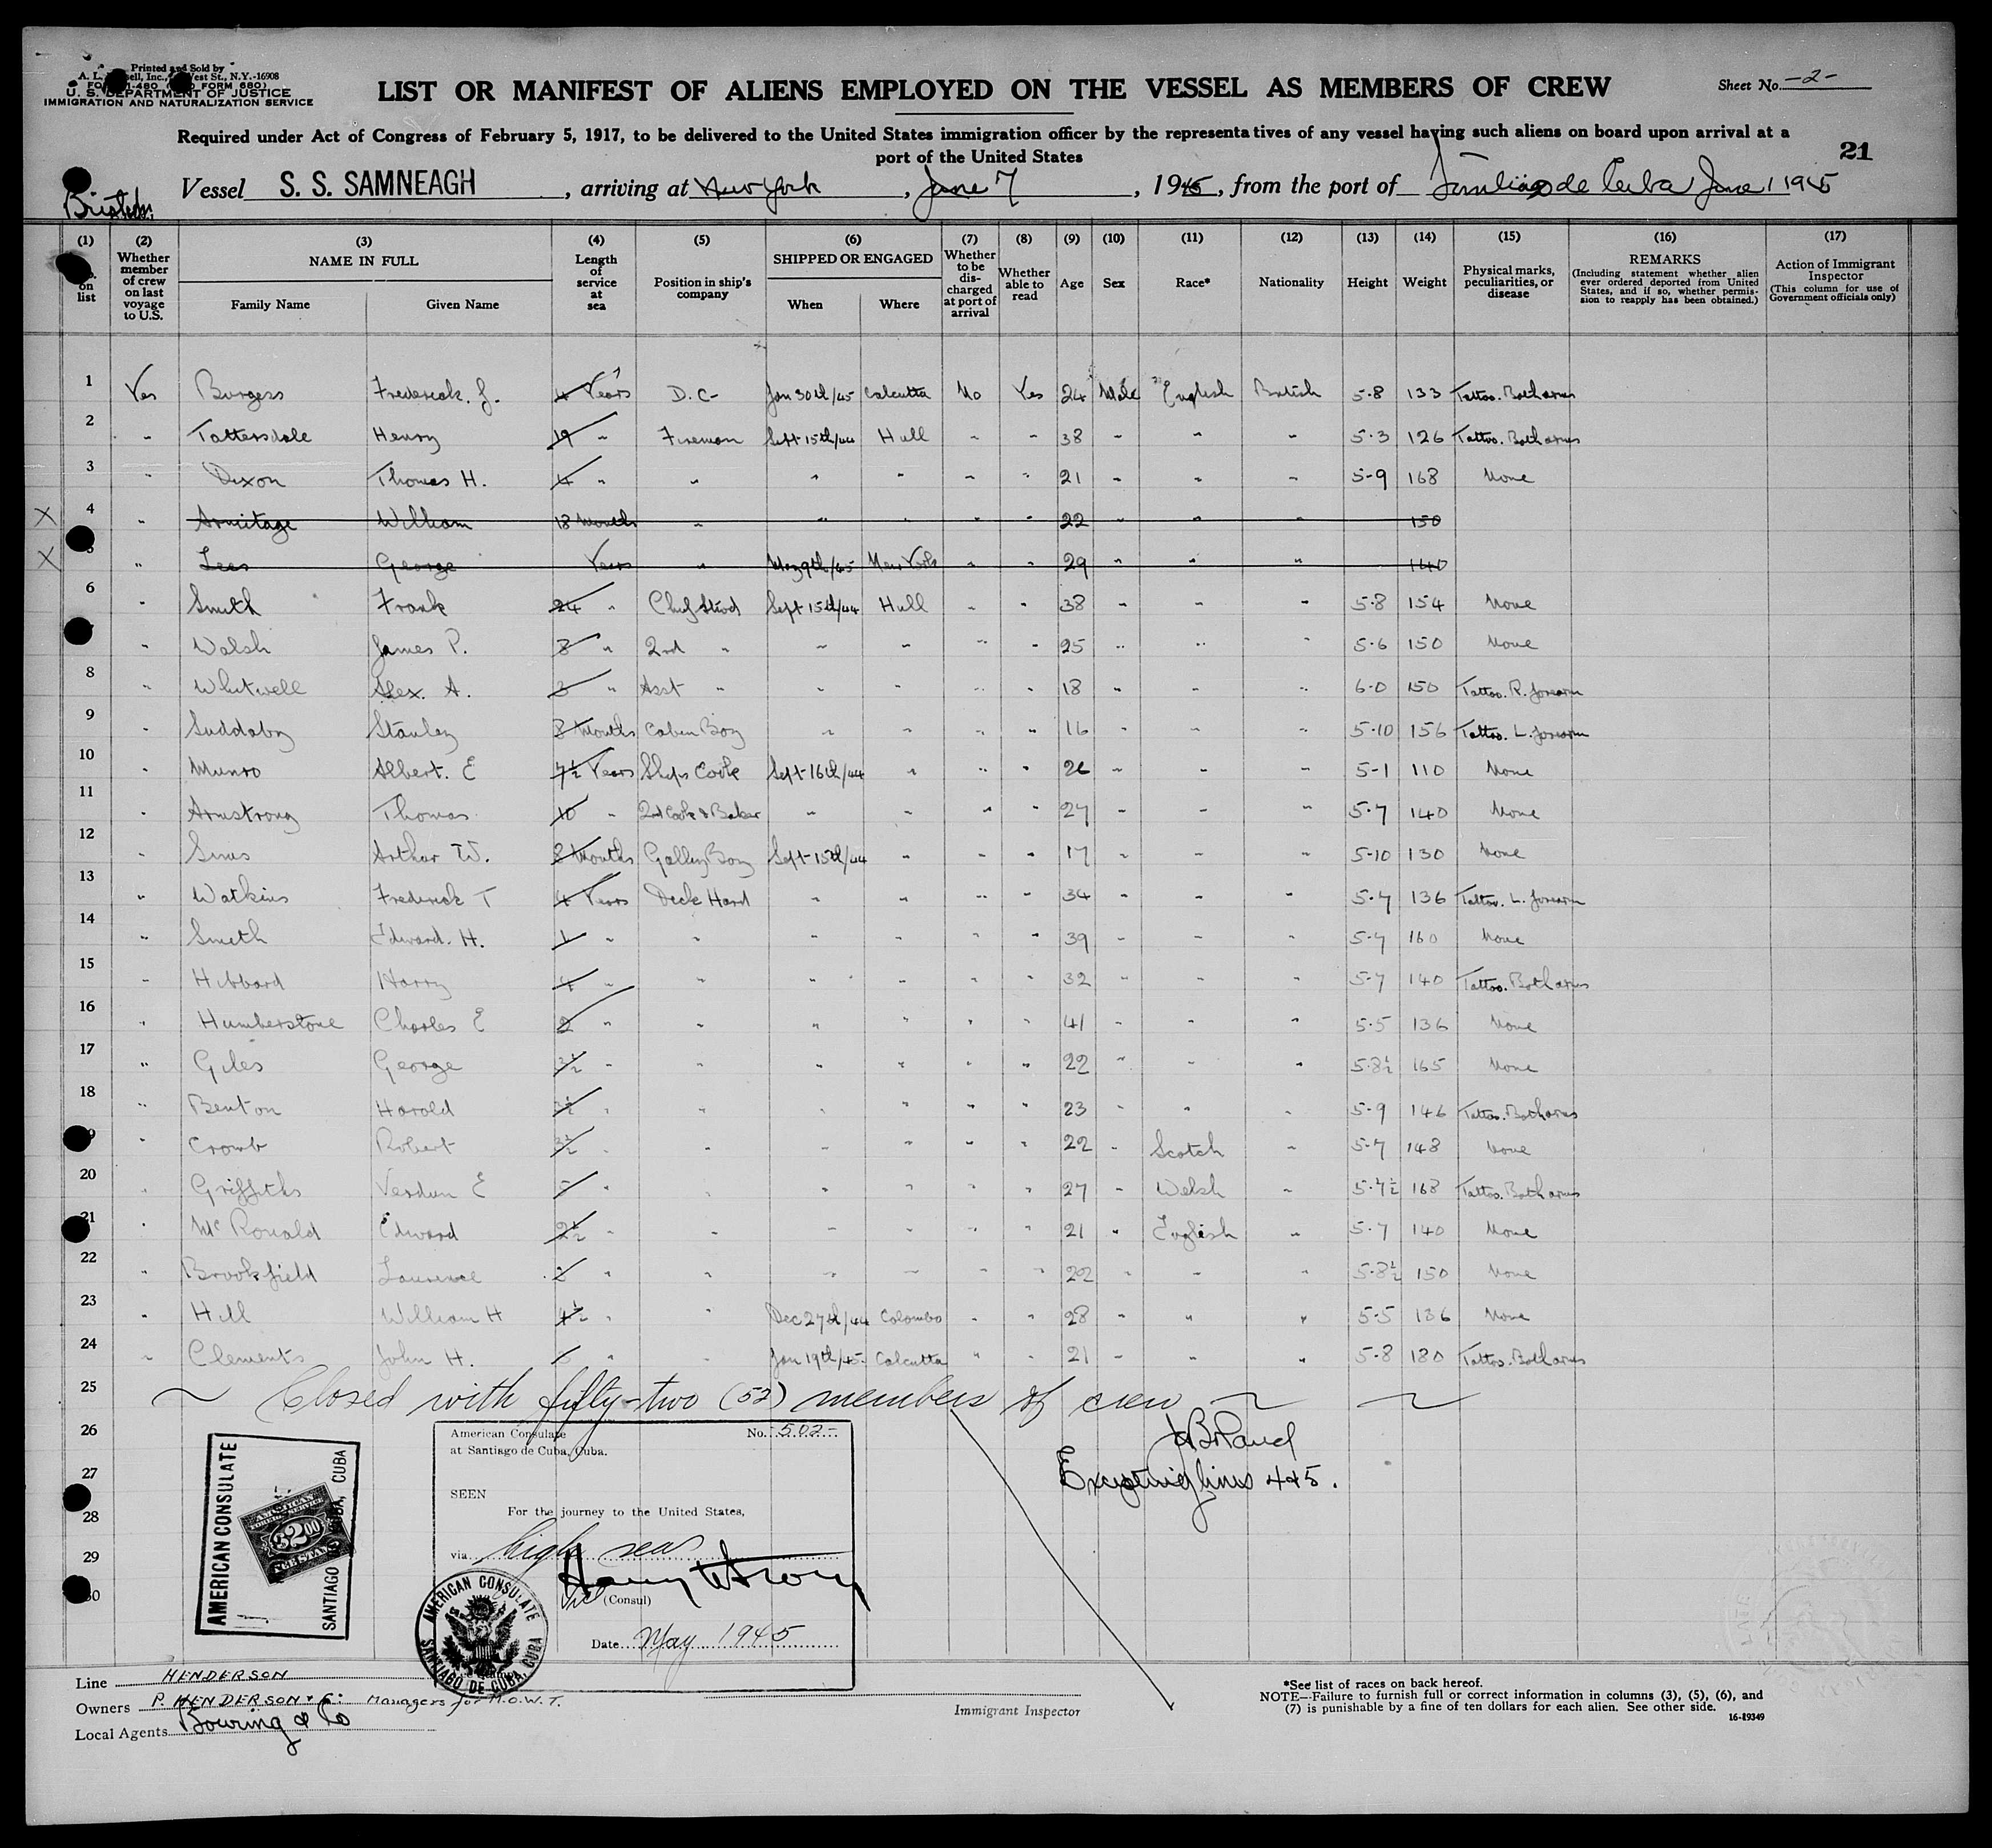 Printed and Sold by
U. S. DEPARTMENT OF JUSTICE
IMMIGRATION AND NATURALIZATION SERVICE
LIST OR MANIFEST OF ALIENS EMPLOYED ON THE VESSEL AS MEMBERS OF CREW
Sheet No. -2-
Required under Act of Congress of February 5, 1917, to be delivered to the United States immigration officer by the representatives of any vessel having such aliens on board upon arrival at a
port of the United States
21
Vessel S. S. SAMNEAGH, arriving at New York, June 7, 1945, from the port of Santiago de Cuba June 1 1945
(1) (2) (3) (4) (5) (6) (7) (8) (9) (10) (11) (12) (13) (14) (15) (16) (17)
on list
Whether member of crew on last voyage to U.S.
NAME IN FULL
Family Name Given Name
Length of service at sea
Position in ship's company
SHIPPED OR ENGAGED
When Where
Whether to be discharged at port of arrival
Whether able to read
Age
Sex
Race*
Nationality
Height
Weight
Physical marks, peculiarities, or disease
REMARKS
(Including statement whether alien ever ordered deported from United States, and if so, whether permission to reapply has been obtained.)
Action of Immigrant Inspector
(This column for use of Government officials only)
1 Yes Burgess Frederick. J. 4 Years D.C. Jan 30th/45 Calcutta No Yes 24 Male English British 5-8 133 Tattoo. Both arms
2 " Tattersdale Henry 19 " Fireman Sept 15th/44 Hull " " 38 " " " 5-3 126 Tattoo. Both arms
3 " Dixon Thomas H. 4 " " " " " " 21 " " " 5-9 168 None
X 4 " Armitage William 18 Months " " " " " 22 " " " 150
X 5 " Lees George Years " May 9th/45 New York " " 29 " " " 140
6 " Smith Frank 24 " Chief Stwd Sept 15th/44 Hull " " 38 " " " 5-8 154 None
" Walsh James P. 8 " 2nd " " " " " 25 " " " 5-6 150 None
8 " Whitwell Alex. A. 3 " Asst " " " " " 18 " " " 6-0 150 Tattoo. R. forearm
9 " Suddaby Stanley 8 Months Cabin Boy " " " " 16 " " " 5-10 156 Tattoo. L. forearm
10 " Munro Albert. E 7½ Years Ships Cook Sept 16th/44 " " " 26 " " " 5-1 110 None
11 " Armstrong Thomas 10 " 2nd Cook & Baker " " " " 27 " " " 5-7 140 None
12 " Sims Arthur W. 8 Months Galley Boy Sept 15th/44 " " " 17 " " " 5-10 130 None
13 " Watkins Frederick T 4 Years Deck Hand " " " " 34 " " " 5-7 136 Tattoo. L. forearm
14 " Smith Edward. H. 1 " " " " " " 39 " " " 5-7 160 None
15 " Hibbard Harry 4 " " " " " " 32 " " " 5-7 140 Tattoo. Both arms
16 " Humberstone Charles E 2 " " " " " " 41 " " " 5-5 136 None
17 " Giles George 3½ " " " " " " 22 " " " 5-8½ 165 None
18 " Benton Harold 3½ " " " " " " 23 " " " 5-9 146 Tattoo. Both arms
" Cromb Robert 3½ " " " " " " 22 " Scotch " 5-7 148 None
20 " Griffiths Verdun E 5 " " " " " " 27 " Welsh " 5-7½ 168 Tattoo. Both arms
21 " McRonald Edward 2½ " " " " " " 21 " English " 5-7 140 None
22 " Brookfield Laurence 2 " " " " " " 22 " " " 5-8½ 150 None
23 " Hill William H 4½ " " Dec 27th/44 Colombo " " 28 " " " 5-5 136 None
24 " Clements John H. " " Jan 19th/45 Calcutta " " 21 " " " 5-8 180 Tattoo. Both arms
25 Closed with fifty-two (52) members of crew
26
27 Excepting lines 4 & 5.
28
29
30
AMERICAN CONSULATE
SANTIAGO DE CUBA, CUBA
AMERICAN
FOREIGN SERVICE
$2.00
FEE STAMP
American Consulate
at Santiago de Cuba, Cuba.
No. -502-
SEEN
For the journey to the United States,
via high seas
Vice (Consul)
Date May 1945
AMERICAN CONSULATE
SANTIAGO DE CUBA, CUBA
Line HENDERSON
Owners P. HENDERSON & Co: Managers for M.O.W.T.
Local Agents Bowring & Co
Immigrant Inspector
*See list of races on back hereof.
NOTE—Failure to furnish full or correct information in columns (3), (5), (6), and
(7) is punishable by a fine of ten dollars for each alien. See other side.
16-19349